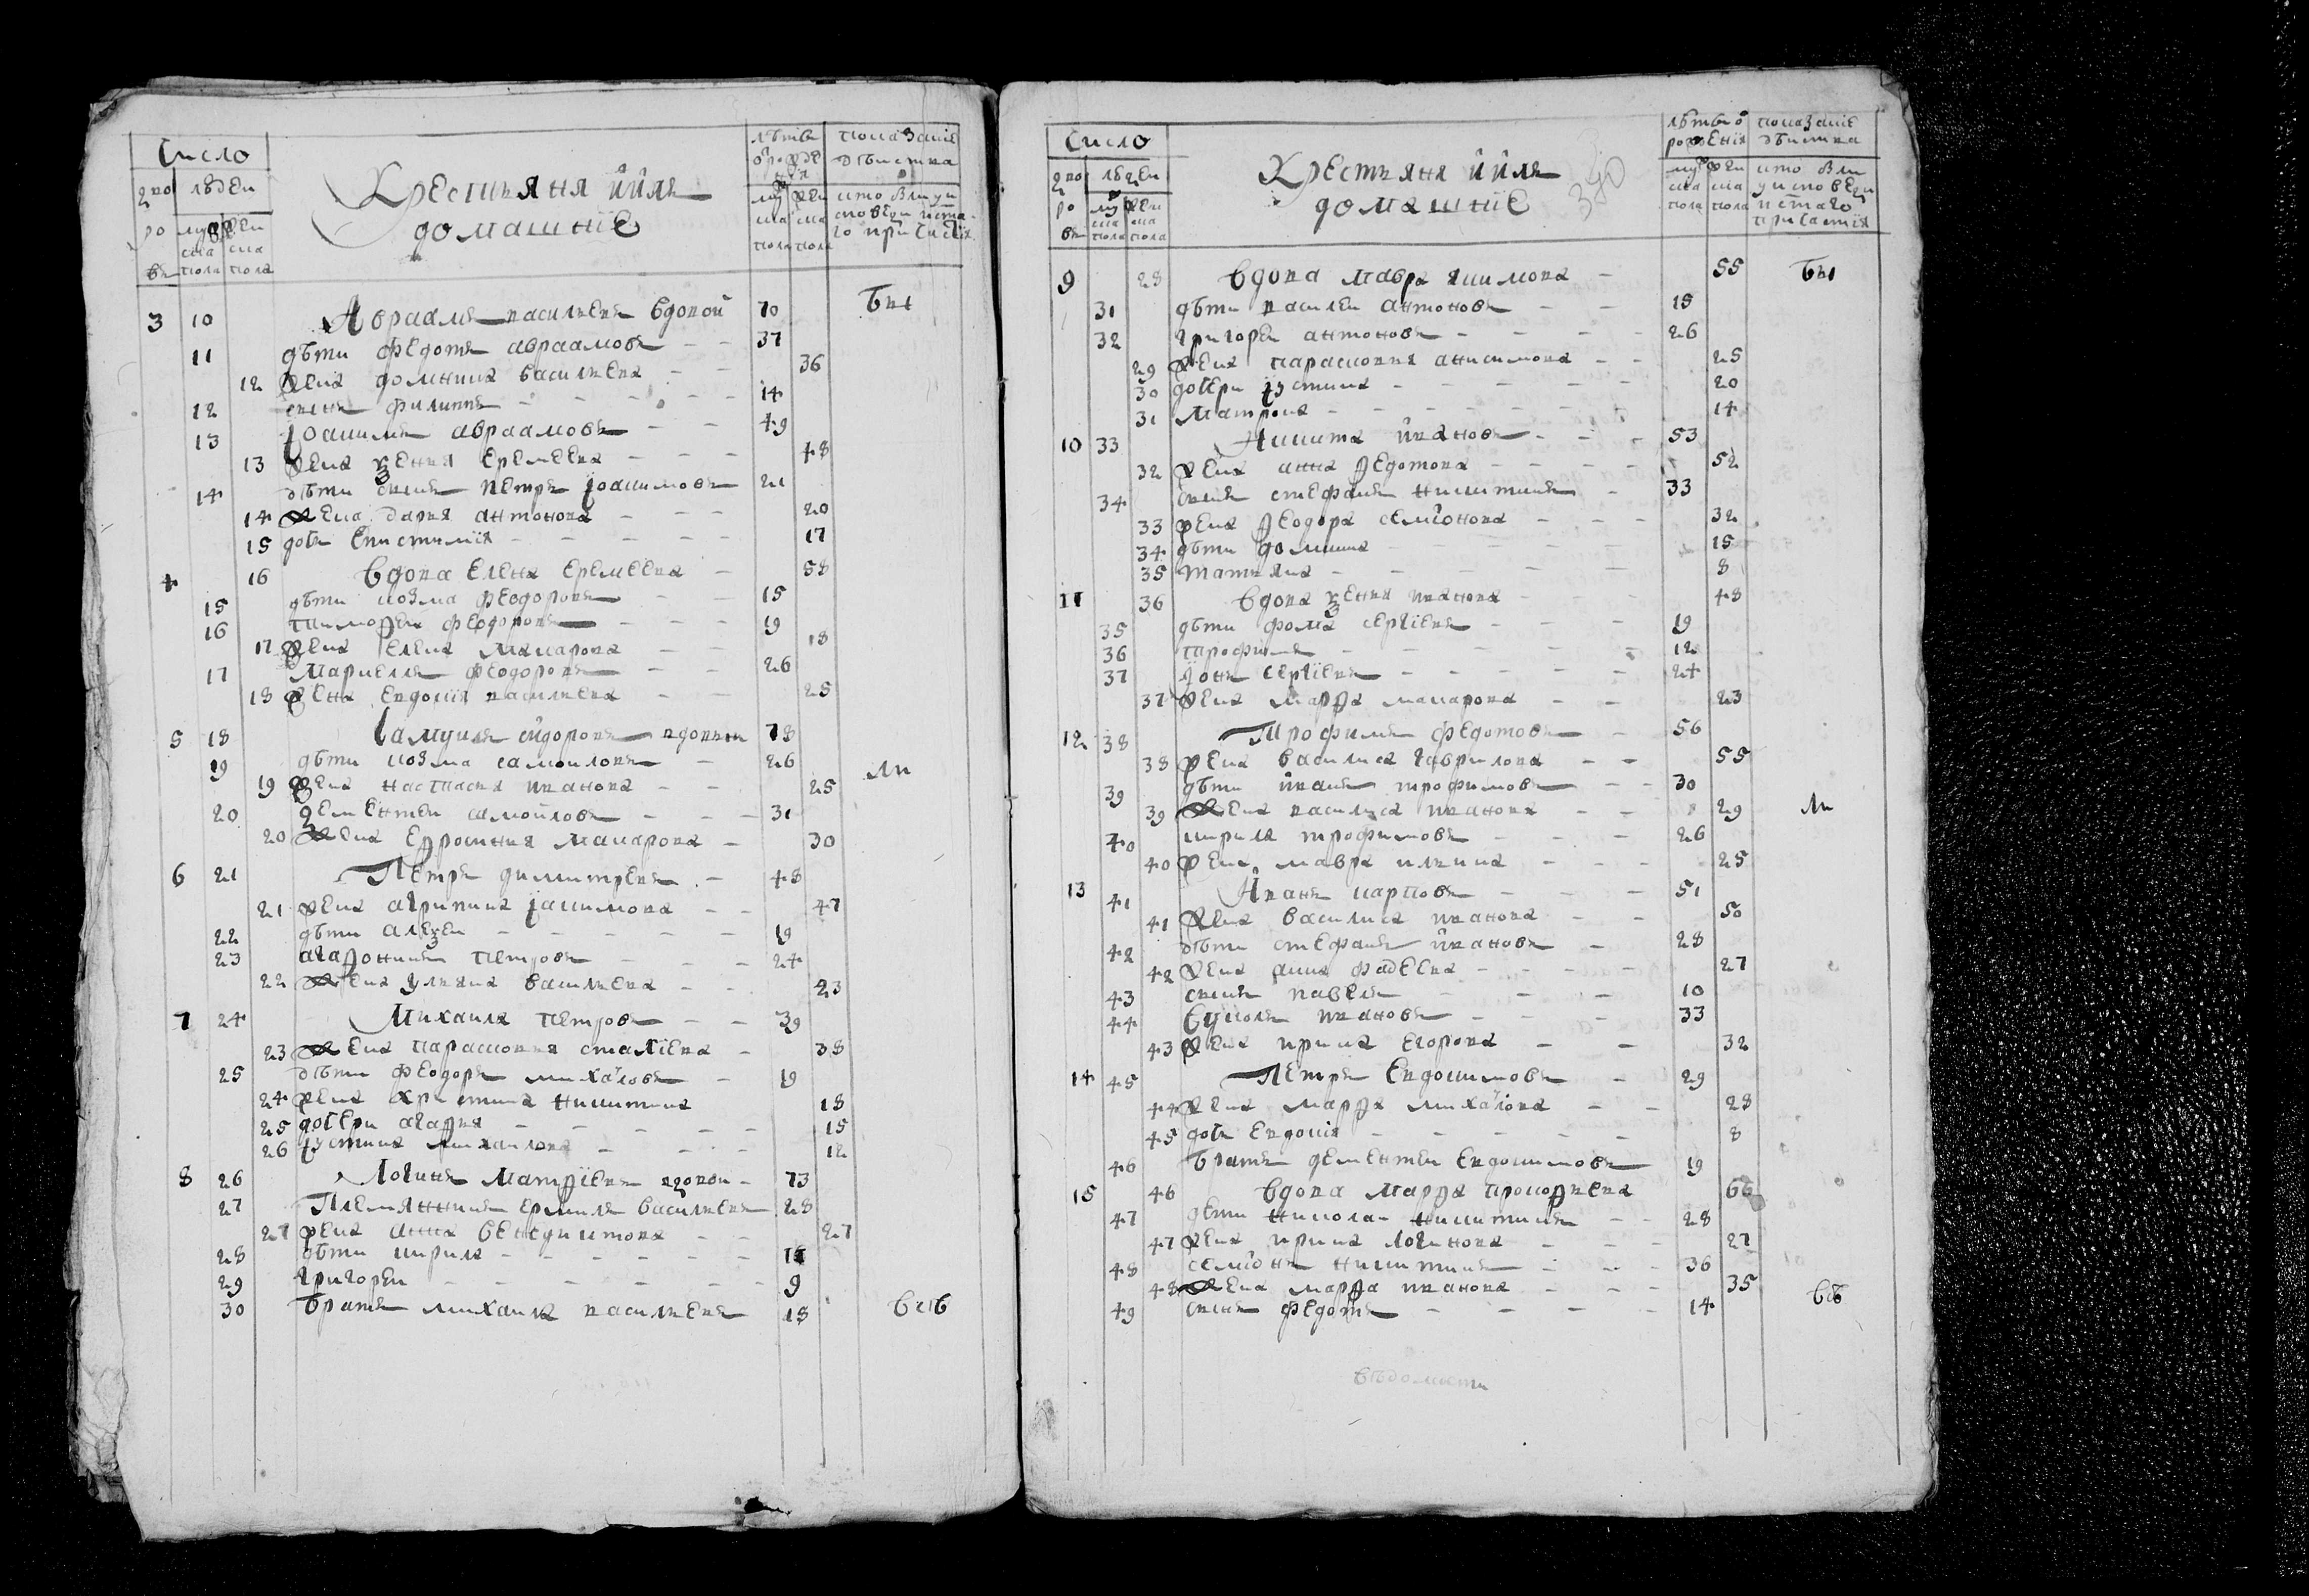 Число
дво ро въ
людеи
муж ска пола
жен ска пола
Крестьяня и ихъ домашние
лѣтъ от рожде ния
муж ска пола
жен ска пола
показание действа
кто былъ у исповеди и свята го причастия
3 10 Авраамъ васильевъ вдовой 70 бы
11 дѣти федотъ авраамовъ - - 37
12 жена домника васильева - - 36
12 сынъ филиппъ - - - - - 14
13 Iоакимъ авраамовъ - - 49
13 жена ѯения еремеева - - - 48
14 дѣти сынъ петръ Iоакимовъ 21
14 жена дарья антонова - - - 20
15 дочь епистимия - - - - - 17
4 16 вдова елена еремеева - 58
15 дѣти козма феодоровъ - - 15
16 тимоѳеи феодоровъ - - - 19
17 жена елена макарова - - 18
17 Маркелъ феодоровъ - - 26
18 жена евдокия васильева - - 25
5 18 Самуилъ сидоровъ вдовыи 78
19 дѣти козма самоиловъ - 26 ли
19 жена настасья иванова - - 25
20 дементеи самоиловъ - - - 31
20 жена еѳросинья макарова - 30
6 21 Петръ димитревъ - 48
21 жена агрипина Iакимова - - 47
22 дѣти алеѯеи - - - - - 19
23 агаѳоникъ петровъ - - - 24
22 жена ульяна васильева - - 23
7 24 Михаила петровъ - - 39
23 жена парасковья стахиева - 38
25 дѣти феодоръ михаловъ - 19
24 жена христина никитина 18
25 дочери агаѳья - - - - - 15
26 Iустина михаилова - - - - 12
8 26 Логинъ матѳиевъ вдовои - 73
27 Племянникъ ермилъ васильевъ 28
27 жена анна бенедиктова - - 27
28 дѣти кирила - - - - - - 11
29 григореи - - - - - - - 9
30 братъ михаила васильевъ 18 всѣ
Число
дво ро въ
людеи
муж ска пола
жен ска пола
Крестьяня и ихъ домашние
380
лѣтъ от рождения
муж ска пола
жен ска пола
показание действа
кто былъ у исповеди и святаго причастия
9 28 вдова мавра якимова - 55 бы
31 дѣти василеи антоновъ - - 15
32 григореи антоновъ - - - - 26
29 жена парасковья анисимова - - 25
30 дочери Iустина - - - - - - 20
31 Матрона - - - - - - - 14
10 33 Никита ивановъ - - - 53
32 жена анна ѳедотова - - - - - 52
34 сынъ стефанъ никитинъ - 33
33 жена ѳеодора семионова - - - 32
34 дѣти домника - - - - - 15
35 татьяна - - - - - - 8
11 36 вдова ѯения иванова - - - 48
35 дѣти фома сергиевъ - - - 19
36 трофимъ - - - - - - 12
37 Iонъ сергиевъ - - - - - 24
37 жена марѳа макарова - - 23
12 38 Трофимъ федотовъ - 56
38 жена василиса гаврилова - - 55
39 дѣти иванъ трофимовъ - - 30
39 жена василиса иванова - - 29 ли
40 кирила трофимовъ - - - 26
40 жена мавра ильина - - - 25
13 41 Иванъ карповъ - - - 51
41 жена василиса иванова - - 50
42 дѣти стефанъ ивановъ - 28
42 жена анна фадеева - - - - 27
43 сынъ павелъ - - - 10
44 Вуколъ ивановъ - - - 33
43 жена ирина егорова - - 32
14 45 Петръ евдокимовъ - 29
44 жена марѳа михалова - - 28
45 дочь евдокия - - - - - 8
46 братъ дементеи евдокимовъ 19
15 46 вдова марѳа прокоѳьева 66
47 дѣти никола- никитинъ - - 28
47 жена ирина логинова - - - 27
48 семионъ никитинъ - - - 36
48 жена марѳа иванова - - - 35
49 сынъ федотъ - - - - 14 всѣ
вѣдомости